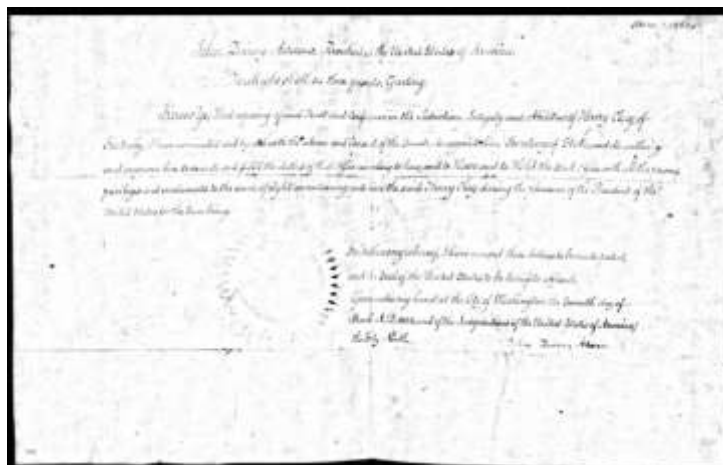 John Quincy Adams President of the United States of America
To all who shall see these presents, Greeting
Know Ye, That reposing special Trust and Confidence in the Patriotism, Integrity and Abilities of Henry Clay of
Kentucky, I have nominated and by and with the advice and consent of the Senate do appoint him Secretary of State and do authorize
and empower him to execute and fulfil the duties of that office according to law, and to Have and to Hold the said office with all the powers
privileges and emoluments to the same of right appertaining unto him the said Henry Clay during the pleasure of the President of the
United States for the time being.
In testimony whereof, I have caused these letters to be made patent,
and the Seal of the United States to be hereunto affixed.
Given under my hand at the City of Washington the seventh day of
March A.D. and of the Independence of the United States of America
the forty
John Quincy Adams